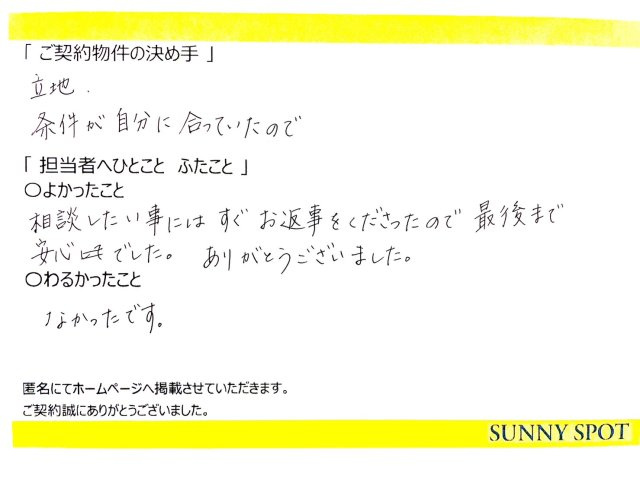 「 ご契約物件の決め手 」
立地.
条件が自分に合っていたので
「 担当者へひとこと ふたこと 」
○よかったこと
相談したい事にはすぐお返事をくださったので最後まで
安心でした。 ありがとうございました。
○わるかったこと
なかったです。
匿名にてホームページへ掲載させていただきます。
ご契約誠にありがとうございました。
SUNNY SPOT